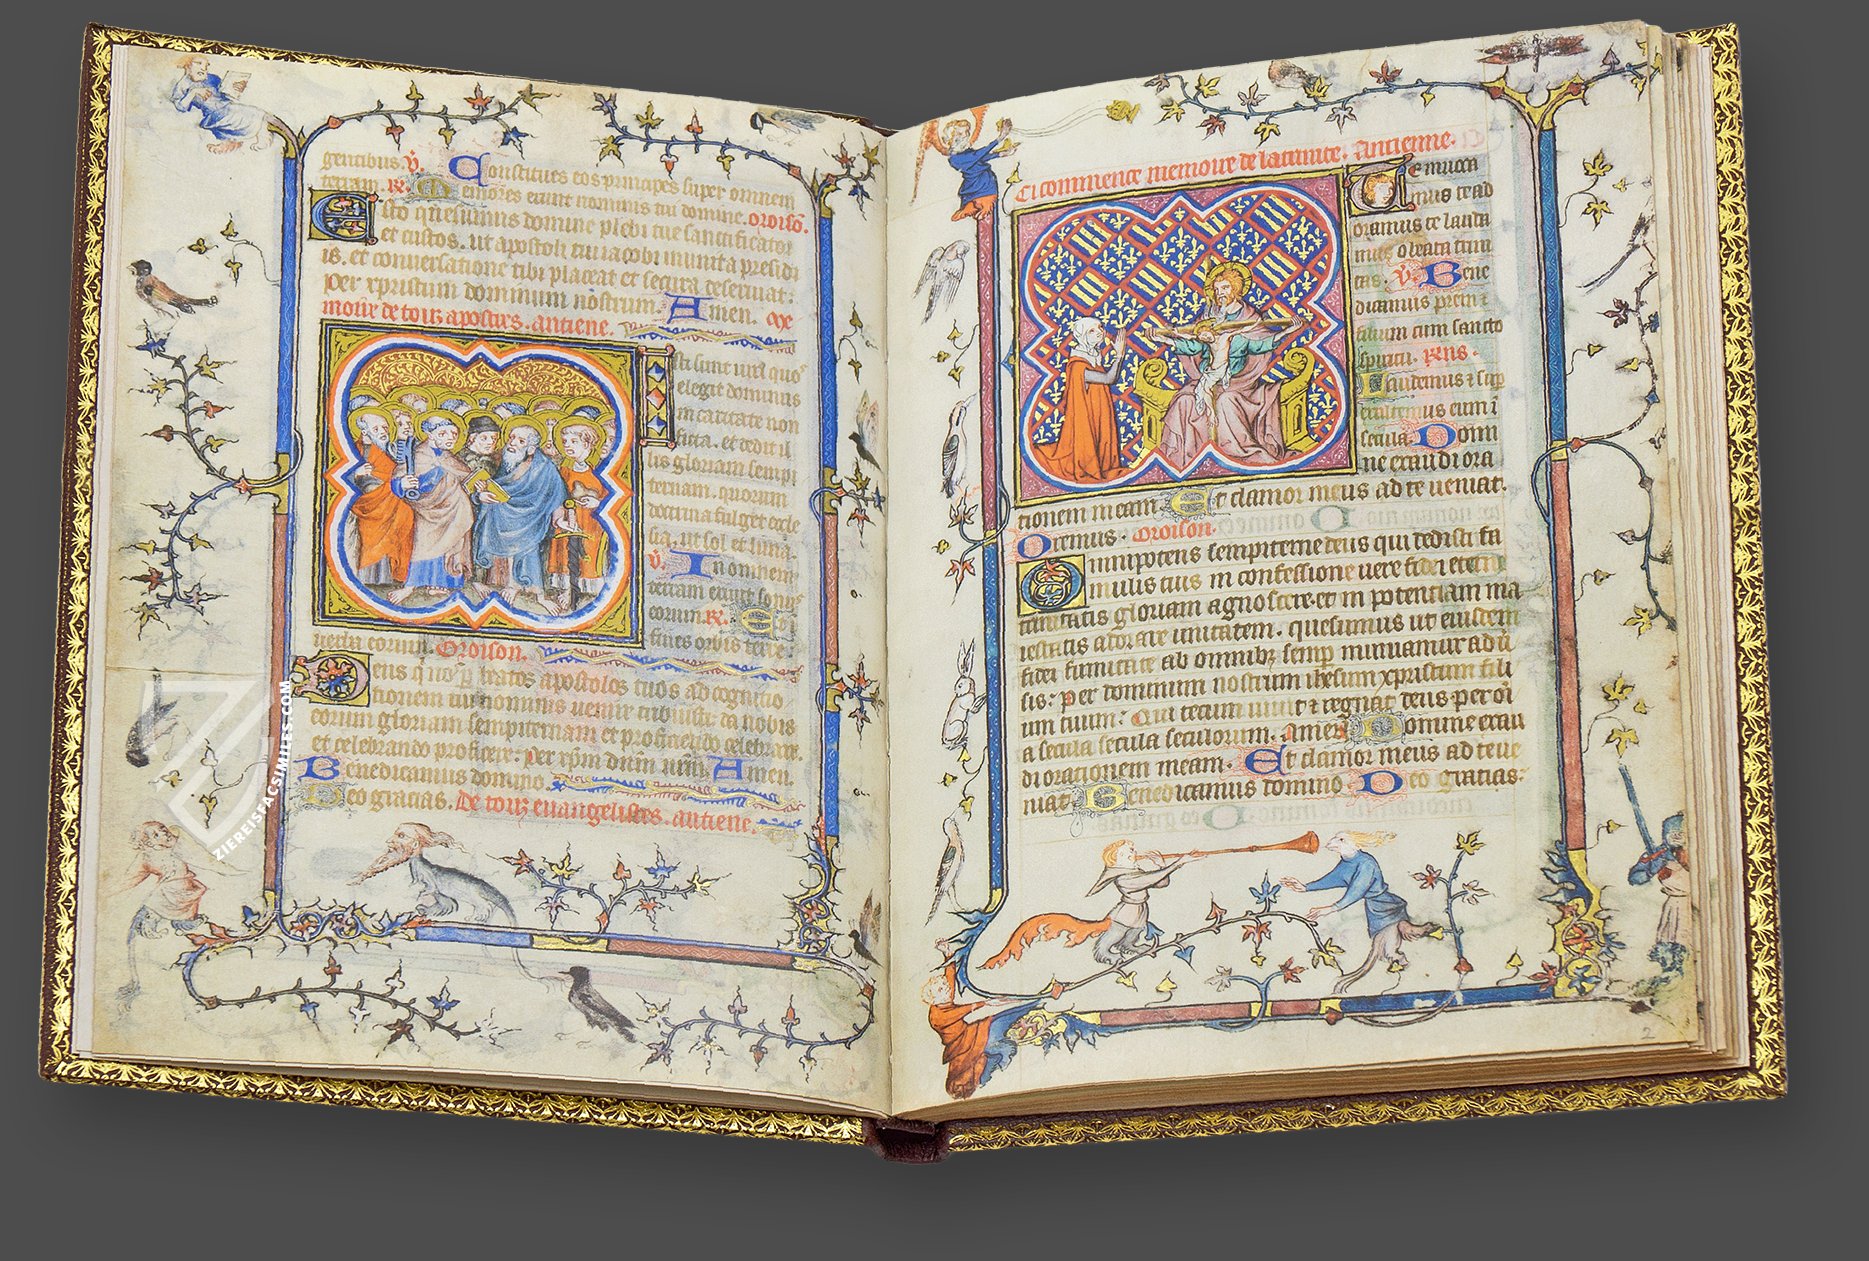 gentibus. v̄. Constitues eos principes super omnem
terram. R̄. Memores erunt nominis tui domine. oroison.
Esto quesumus domine plebi tue sanctificator
et custos. ut apostoli tui iacobi munita presidi
is. et conversatione tibi placeat et secura deserviat.
per xpristum dominum nostrum. Amen.
moire de touz apostres. antiene.
sti sunt viri quos
elegit dominus
in caritate non
ficta. et dedit il
lis gloriam sempi
ternam. quorum
doctrina fulget eccle
sia. ut sol et luna.
v̄. In omnem
terram exivit sonus
eorum. R̄. Et in
fines orbis terre
verba eorum. Oroison.
Deus q̄ nos p̄ beatos apostolos tuos ad cognitio
nem tui nominis venire tribuisti: da nobis
eorum gloriam sempiternam et proficiendo celebrare.
et celebrando proficere. per xpm dnm nrm. Amen.
Benedicamus domino.
Deo gracias. De touz euangelistes. antiene.
Ci commence memoire de la trinite. Antienne.
Te invoca
mus te ad
oramus te lauda
mus o beata trini
tas. v̄. Bene
dicamus prem ⁊
filium cum sancto
spiritu. Rens.
laudemus ⁊ sup
exaltemus eum ī
secula. Domi
ne exaudi ora
tionem meam. Et clamor meus ad te veniat.
Oremus. Oroison.
Omnipotens sempiterne deus qui dedisti fa
mulis tuis in confessione vere fidei eterne
trinitatis gloriam agnoscere. et in potentiam ma
iestatis adorare unitatem. quesumus ut eiusdem
fidei firmitate ab omnibꝫ semp muniamur ad ū
sis: Per dominum nostrum ihesum xpristum fili
um tuum: Qui tecum vivit ⁊ regnat deus per oī
a secula secula seculorum. Amen. Domine exau
di orationem meam. Et clamor meus ad te ve
niat. Benedicamus domino. Deo gratias:
2
ZIEREISFACSIMILES.COM